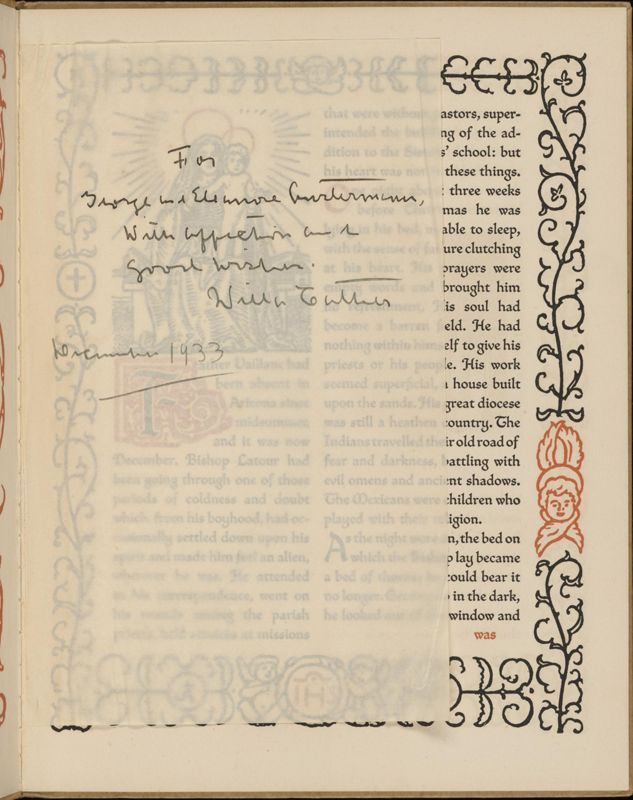 For
George and Eleanore
With affection and
good wishes.
Willa Cather
December 1933
Father Vaillant had
been absent in
Arizona since
midsummer,
and it was now
December. Bishop Latour had
been going through one of those
periods of coldness and doubt
which, from his boyhood, had oc-
casionally settled down upon his
spirit and made him feel an alien,
wherever he was. He attended
to his correspondence, went on
his rounds among the parish
priests, held services at missions
that were without pastors, super-
intended the building of the ad-
dition to the Sisters' school: but
his heart was not in these things.
One night about three weeks
before Christmas he was
lying in his bed, unable to sleep,
with the sense of failure clutching
at his heart. His prayers were
empty words and brought him
no refreshment. His soul had
become a barren field. He had
nothing within himself to give his
priests or his people. His work
seemed superficial, a house built
upon the sands. His great diocese
was still a heathen country. The
Indians travelled their old road of
fear and darkness, battling with
evil omens and ancient shadows.
The Mexicans were children who
played with their religion.
As the night wore on, the bed on
which the Bishop lay became
a bed of thorns; he could bear it
no longer. Getting up in the dark,
he looked out of the window and
was
IHS